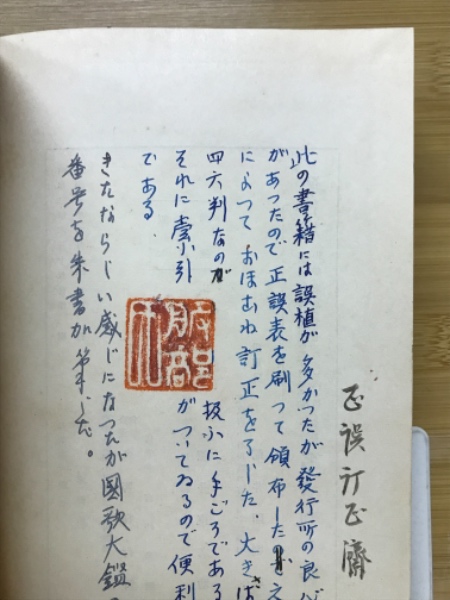 正誤訂正済
此の書籍には誤植が多かつたが發行所の良心
があつたので正誤表を刷つて頒布した
によつておほむね訂正をした．大きさ
四六判なのが 扱ふに手ごろである
それに索引 がついてゐるので便利
である．
服部
きたならしい感じになつたが國歌大鑑
番号を朱書加筆した。